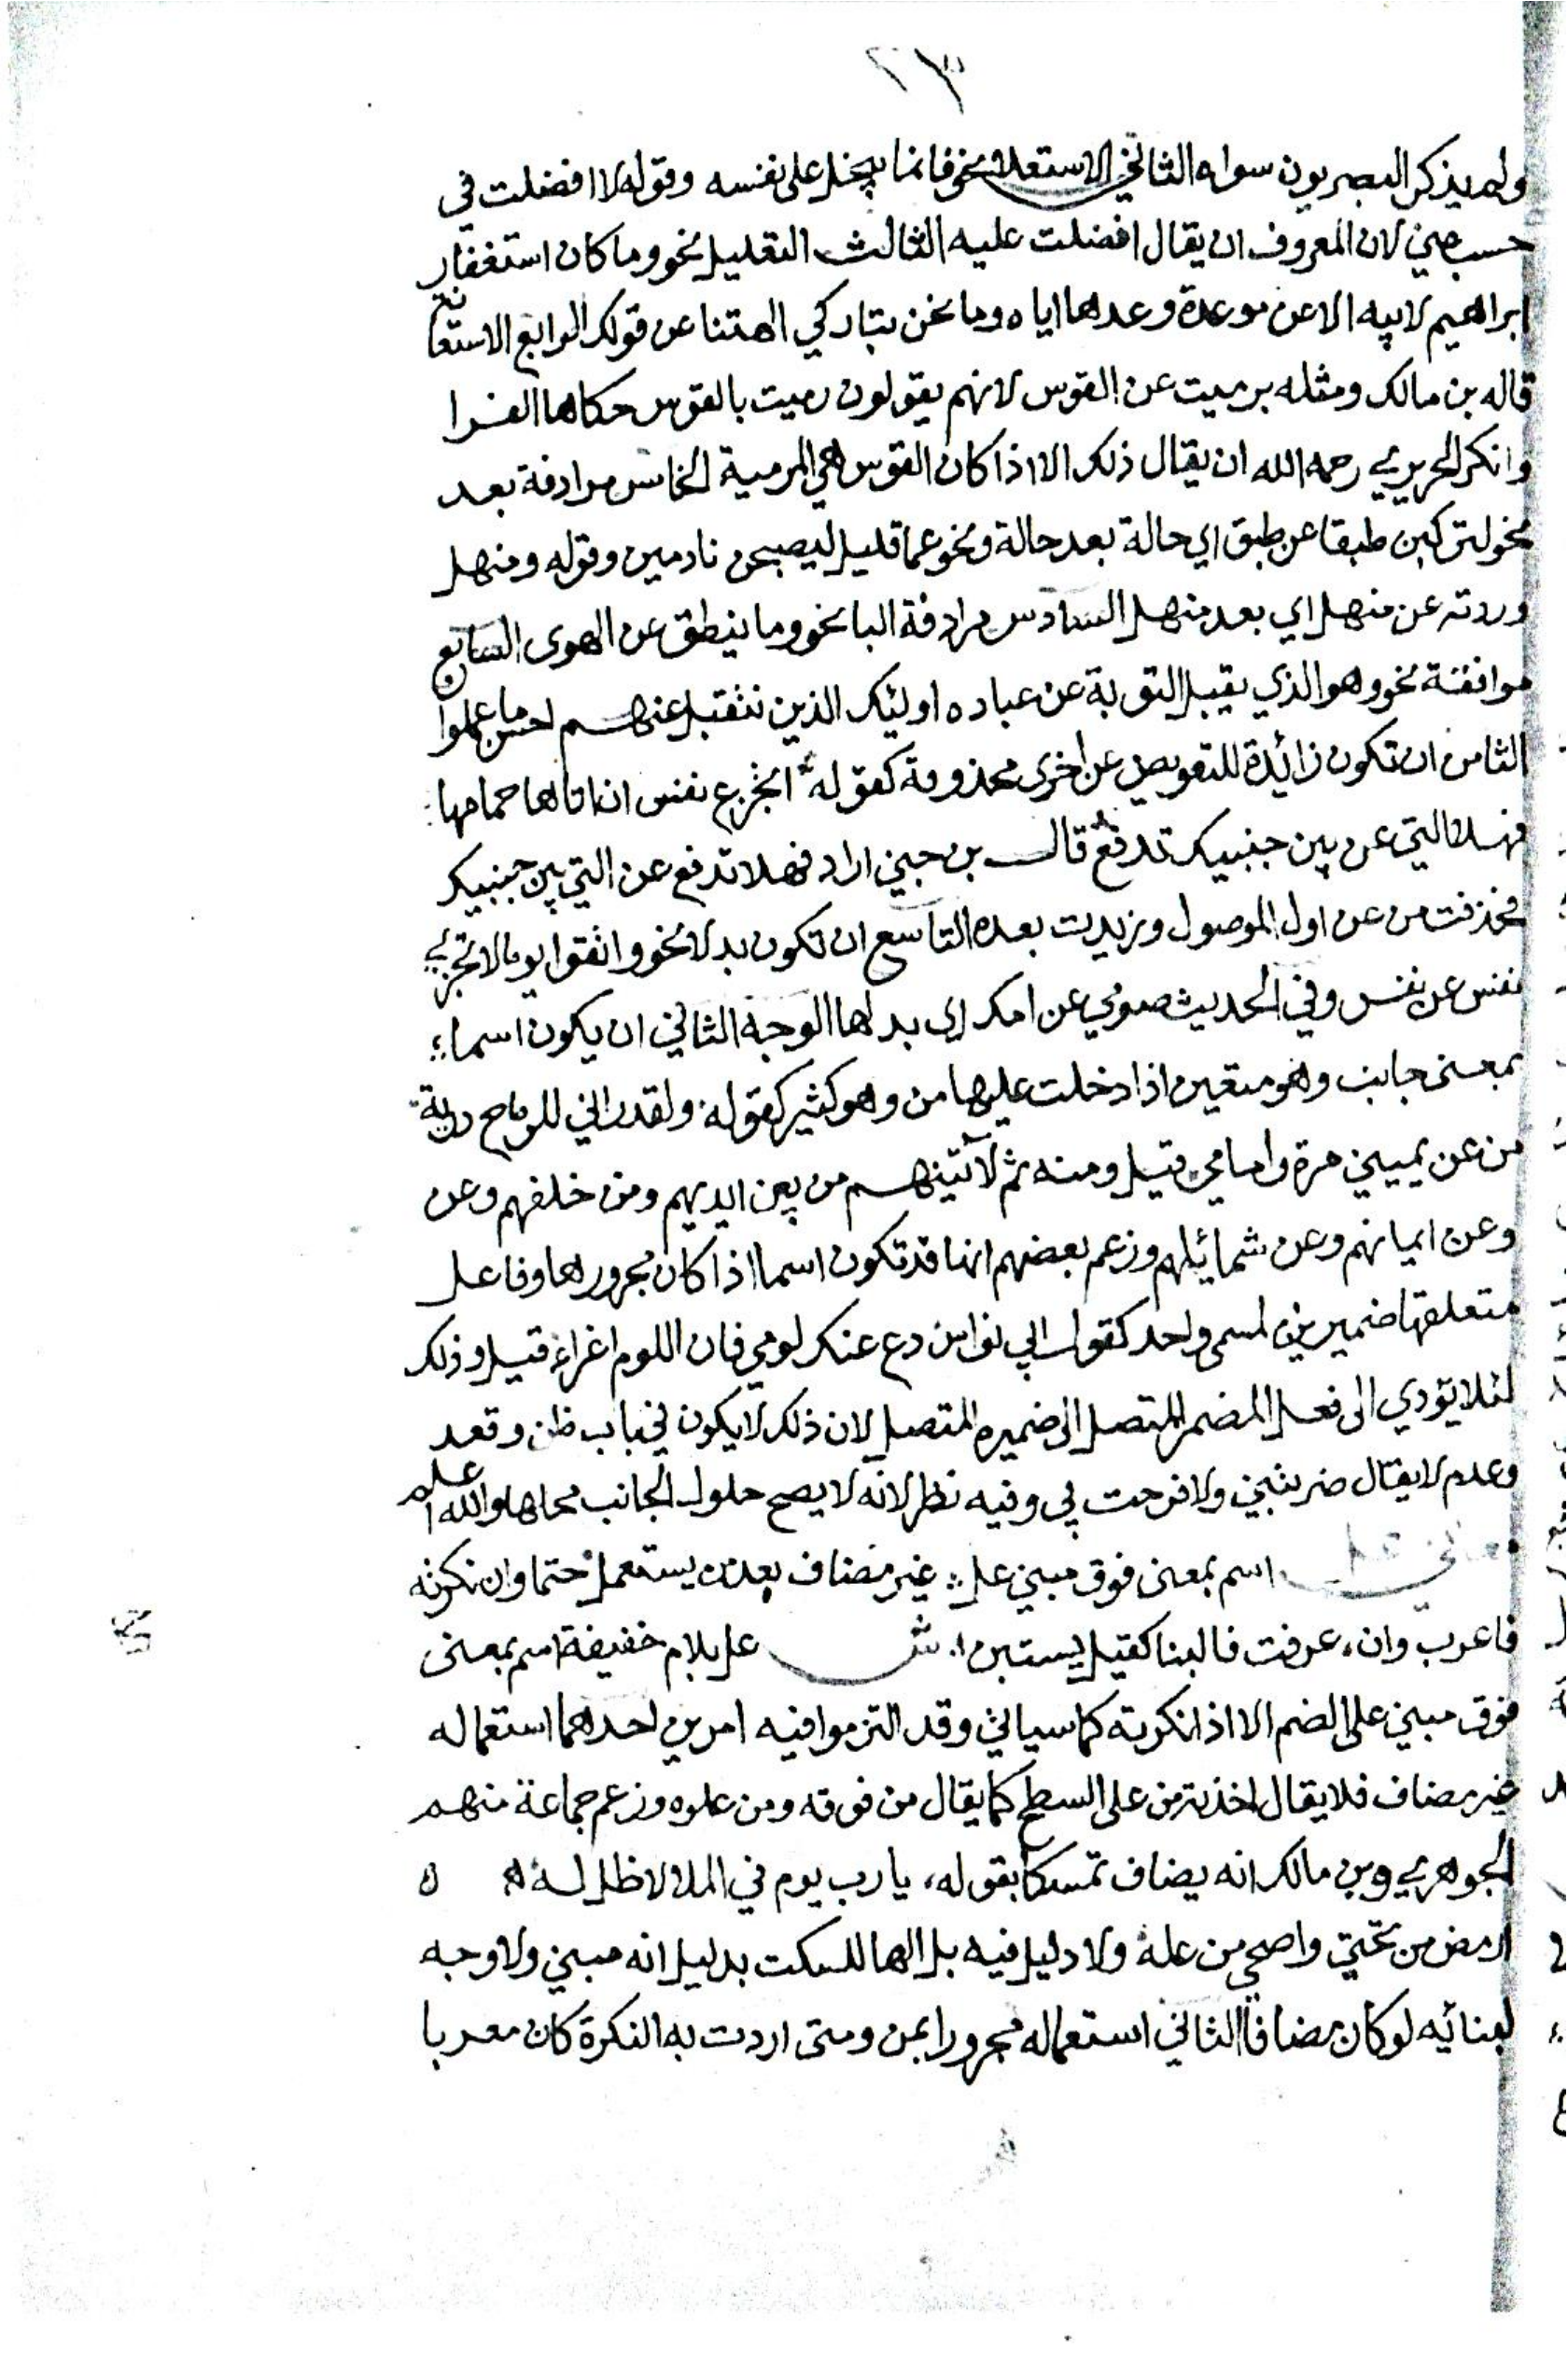 ٢٣
ولم يذكر البصريون سواه الثاني الاستعلا نحو فانما يبخل على نفسه وقوله لا افضلت في
حسب عني لان المعروف ان يقال افضلت عليه الثالث التعليل نحو وما كان استغفار
ابراهيم لابيه الا عن موعدة وعدها اياه وما نحن بتاركي الهتنا عن قولك الرابع الاستعانة
قاله بن مالك ومثله برميت عن القوس لانهم يقولون رميت بالقوس حكاها الفرا
وانكر الحريري رحمه الله ان يقال ذلك الا اذا كان القوس هي المرمية الخامس مرادفة بعد
نحو لتركبن طبقا عن طبق اي حالة بعد حالة ونحو عما قليل ليصبحن نادمين وقوله ومنهل
وردته عن منهل اي بعد منهل السادس مرادفة البا نحو وما ينطق عن الهوى السابع
موافقة نحو وهو الذي يقبل التوبة عن عباده اوليك الذين نتقبل عنهم احسن ما عملوا
الثامن ان تكون زائدة للتعويض عن اخرى محذوفة كقوله اتجزع نفس ان اتاها حمامها
فهلا التي عن بين جنبيك تدفع قال بن جني اراد فهلا تدفع عن التي بين جنبيك
فحذفت من عن اول الموصول وزيدت بعده التاسع ان تكون بدلا نحو واتقوا يوما لا تجزي
نفس عن نفس وفي الحديث صومي عن امك اي بدلها الوجه الثاني ان يكون اسما
بمعنى جانب وهو متعين اذا دخلت عليها من وهو كثير كقوله ولقد اراني للرماح درية
من عن يميني مرة وامامي قيل ومنه ثم لآتينهم من بين ايديهم ومن خلفهم وعن
وعن ايمانهم وعن شمائيلهم وزعم بعضهم انها قد تكون اسما اذا كان مجرورها وفاعل
متعلقها ضميرين لمسمى واحد كقول ابي نواس دع عنك لومي فان اللوم اغراء قيل وذلك
لئلا يؤدي الى فعل المضمر المتصل الى ضميره المتصل لان ذلك لا يكون في باب ظن وقعد
وعدم لا يقال ضربتني ولا فرحت بي وفيه نظر لانه لا يصح حلول الجانب محلها والله اعلم
اسم بمعنى فوق مبني عل غير مضاف بعد من يستعمل حتما وان نكرته
فاعرب وان عرفت فالبنا كقيل يستبن ش عل بلام خفيفة اسم بمعنى
فوق مبني على الضم الا اذا نكرته كما سياتي وقد التزموا فيه امرين احدهما استعماله
غير مضاف فلا يقال اخذته من على السطح كما يقال من فوقه ومن علوه وزعم جماعة منهم
الجوهري وبن مالك انه يضاف تمسكا بقوله، يا رب يوم في الملا لا ظل له ه
ارمض من تحتي واضحى من عله ولا دليل فيه بل الها للسكت بدليل انه مبني ولا وجه
لبنائيه لو كان مضافا الثاني استعماله مجرورا بمن ومتى اردت به النكرة كان معربا